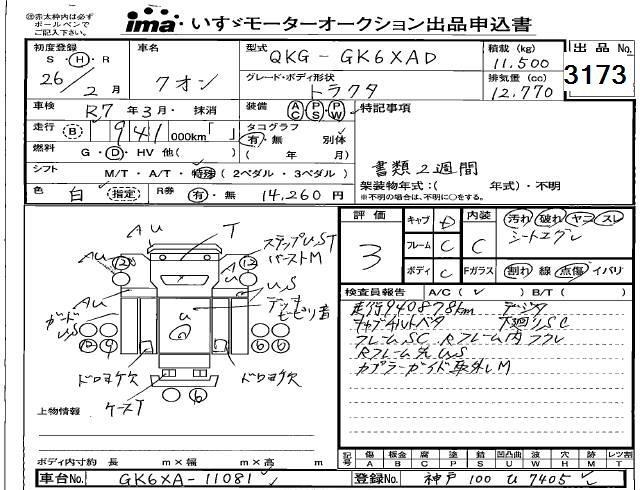 ㊟赤太枠内は必ず
ボールペンで
ご記入下さい。
ima いすゞモーターオークション出品申込書
初度登録
S・H・R
26年 2月
車名
クオン
型式
QKG-GK6XAD
積載 (kg)
11.500
出品 No.
3173
グレード・ボディ形状
トラクタ
排気量 (cc)
12.770
車検 R7年3月・抹消
装備 AC PS PW
特記事項
走行 (B) 941000km「 」
タコグラフ 有・無 別体
( 年 月)
燃料 G・D・HV 他( )
書類2週間
シフト M/T・A/T・特殊(2ペダル・3ペダル)
架装物年式:( 年式)・不明
※不明の場合は、不明に○をする。
色 白 (指定) R券 有・無 14,260円
評価
3
キャブ D
フレーム C
ボディ C
内装 C
汚れ 破れ ヤコ スレ
シートコゲレ
Fガラス 割れ 線 点傷 イバリ
検査員報告 A/C( ✓ ) B/T( )
走行940878km デジタ
キャブチルトベタ 下廻りSC
フレームSC Rフレーム内フクレ
Rフレーム先US
カプラーガイド取外しM
AU T ステップUST
バーストM
AU AU
AU US
ガード US U デッキ
ドロヨケ欠 ドロヨケ欠
ケースT
上物情報
ボディ内寸約 長 m×幅 m×高 m
記号 傷A 板金B 腐C 塗P 錆S 凹凸曲U 波W 穴H 跡M レツ割T
車台No. GK6XA-11081
登録No. 神戸 100 う 7405